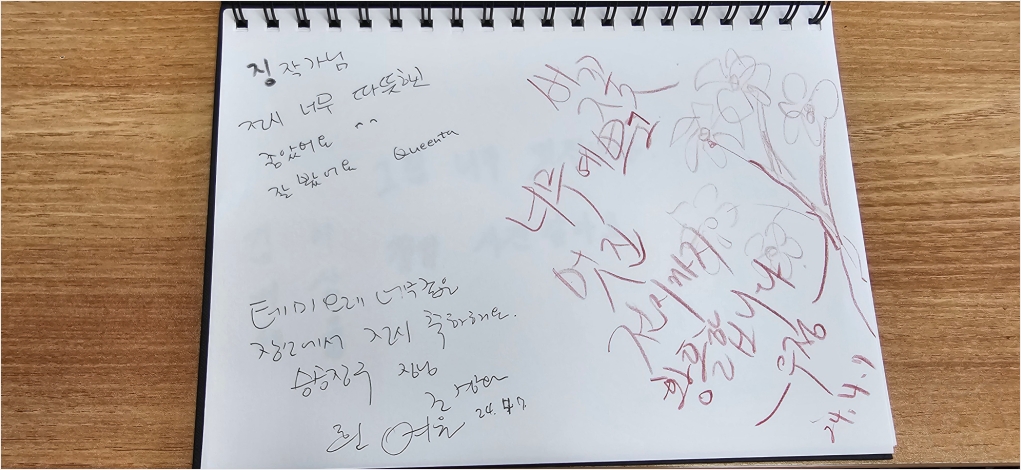 징 작가님
전시 너무 따뜻했
좋았어요 ^^
잘 봤어요 Queenta
테미오래 너무좋은
장소에서 전시 축하해요.
승승장구
24. 4. 7
벚꽃
너무 예쁘고
멋진
전시까지
황홀합니다
24. 4. 7